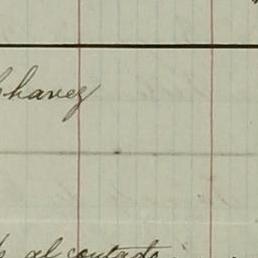 Chavez
al contado